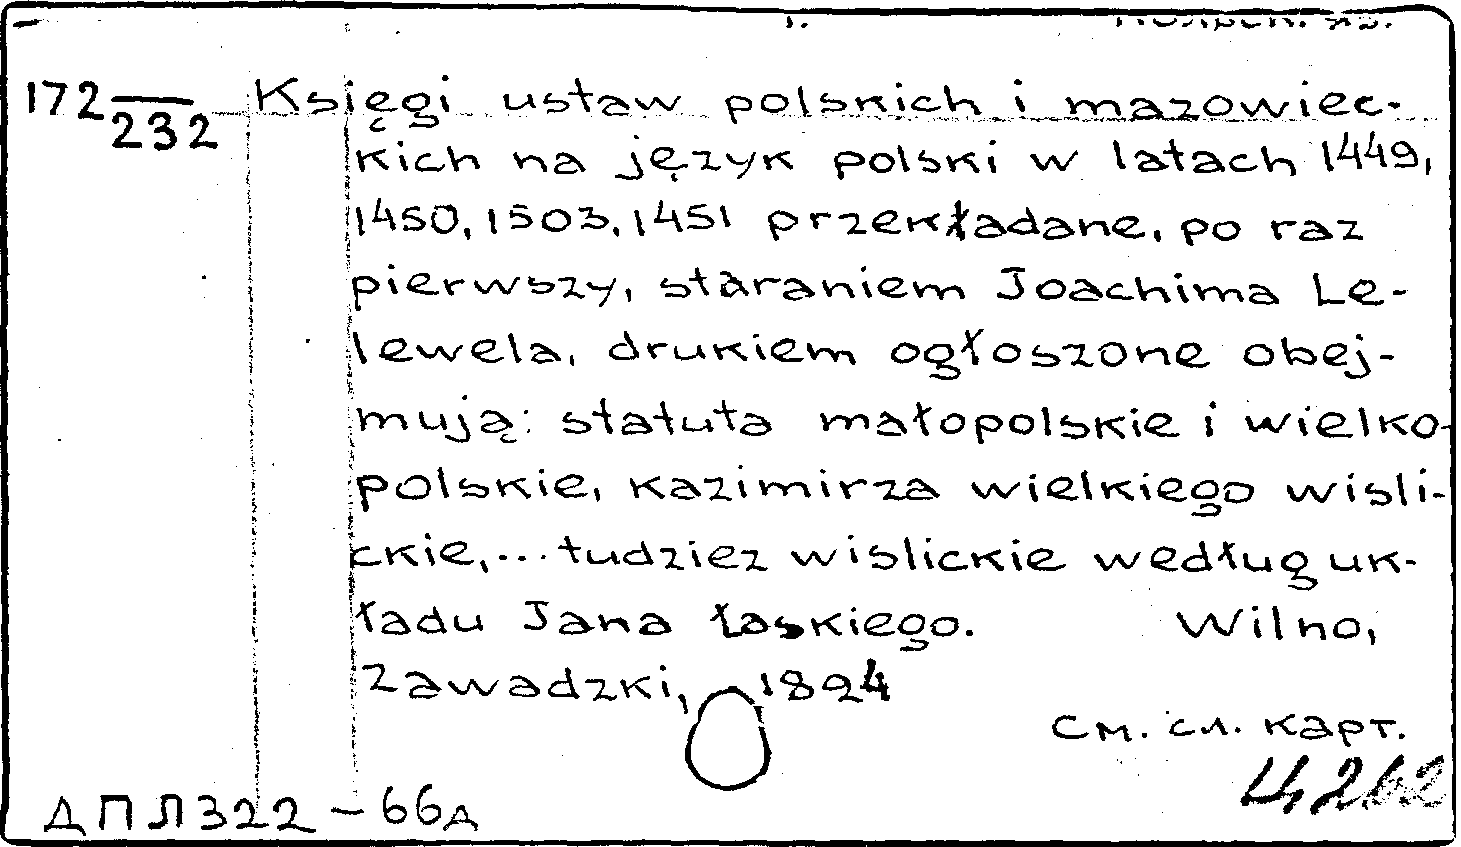 172
232
Księgi ustaw polskich i mazowiec-
kich na język polski w latach 1449,
1450, 1503, 1451 przekładane, po raz
pierwszy, staraniem Joachima Le-
lewela, drukiem ogłoszone obej-
mują: statuta małopolskie i wielko-
polskie, kazimirza wielkiego wisli-
ckie,... tudziez wislickie według uk-
ładu Jana Łaskiego. Wilno,
Zawadzki, 1824
см. сл. карт.
ДПЛ 322 - 66д